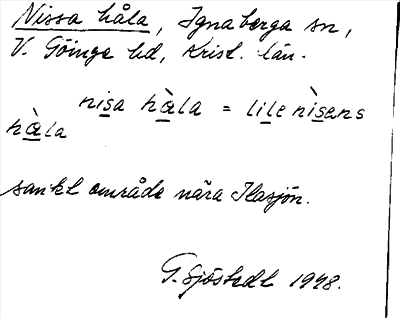 Nissa håla, Ignaberga sn,
V. Göinge hd, Krist. län.
nisa hàla = lile nìsens
hàla
sankt område nära Ilasjön.
G. Sjöstedt 1928.